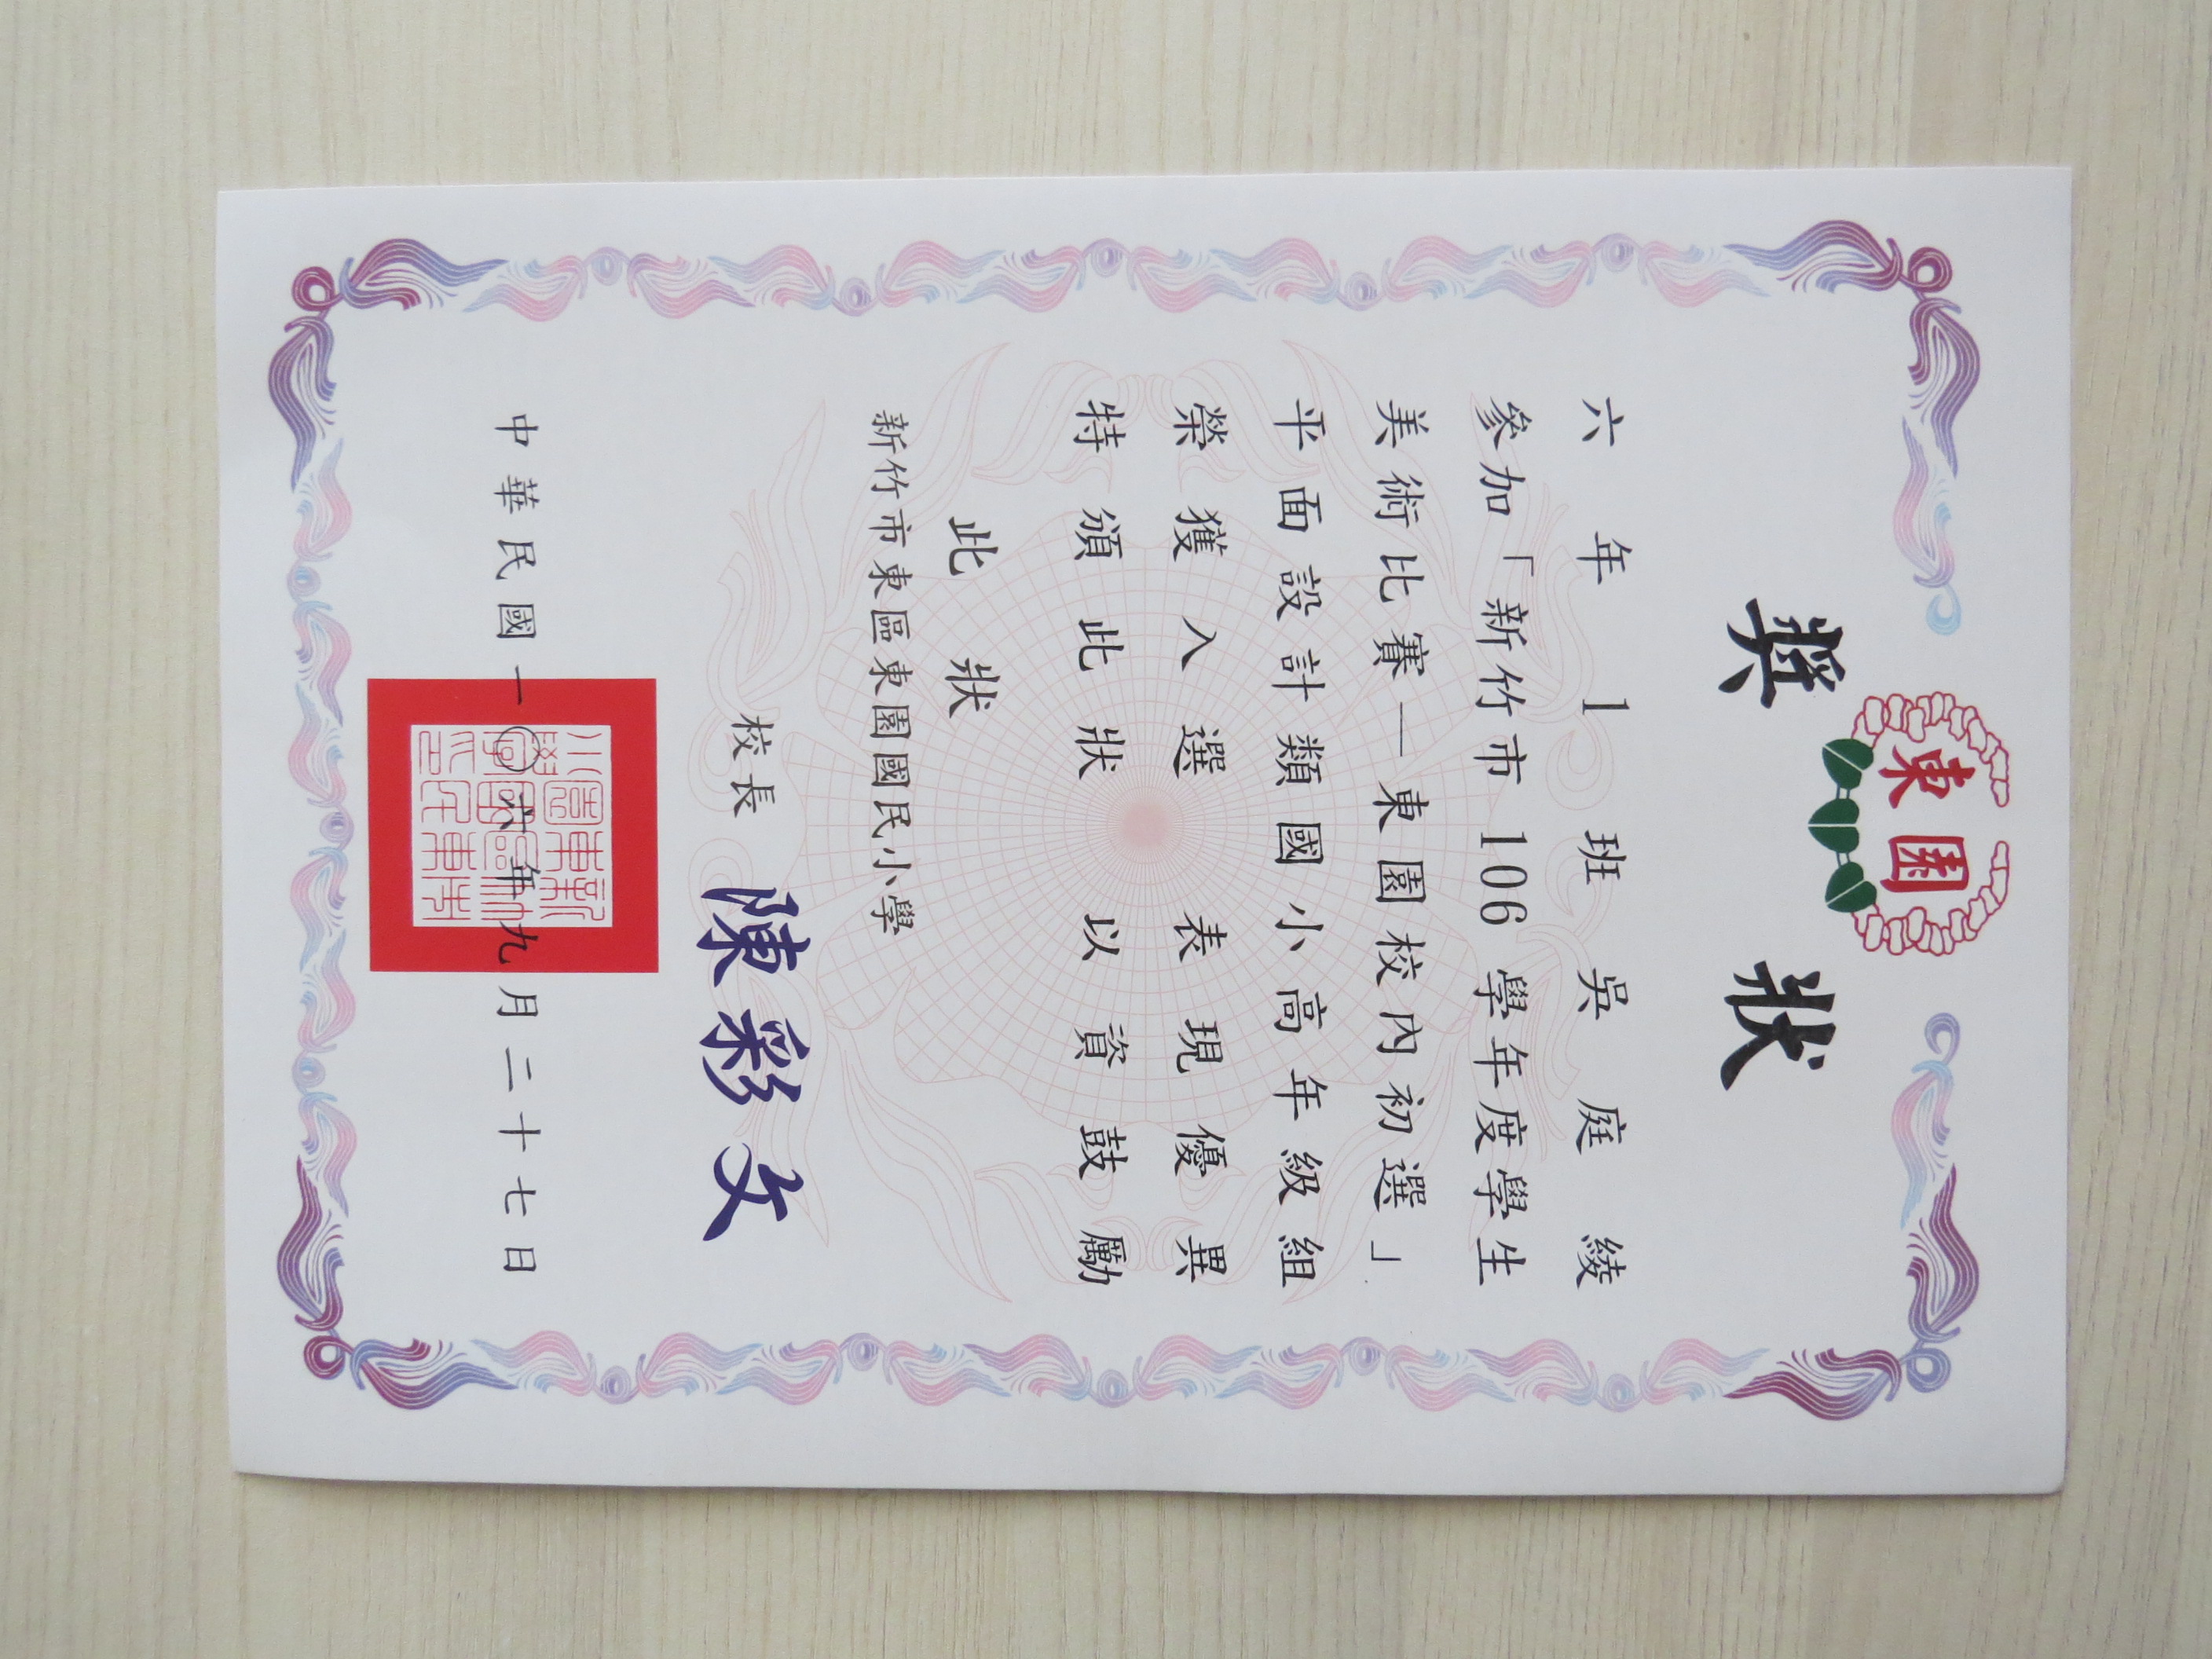 東園
獎狀
六年1班吳庭綾
參加「新竹市106學年度學生
美術比賽—東園校內初選」
平面設計類國小高年級組
榮獲入選 表現優異
特頒此狀 以資鼓勵
此狀
新竹市東區東園國民小學
校長 陳彩文
中華民國一〇六年九月二十七日